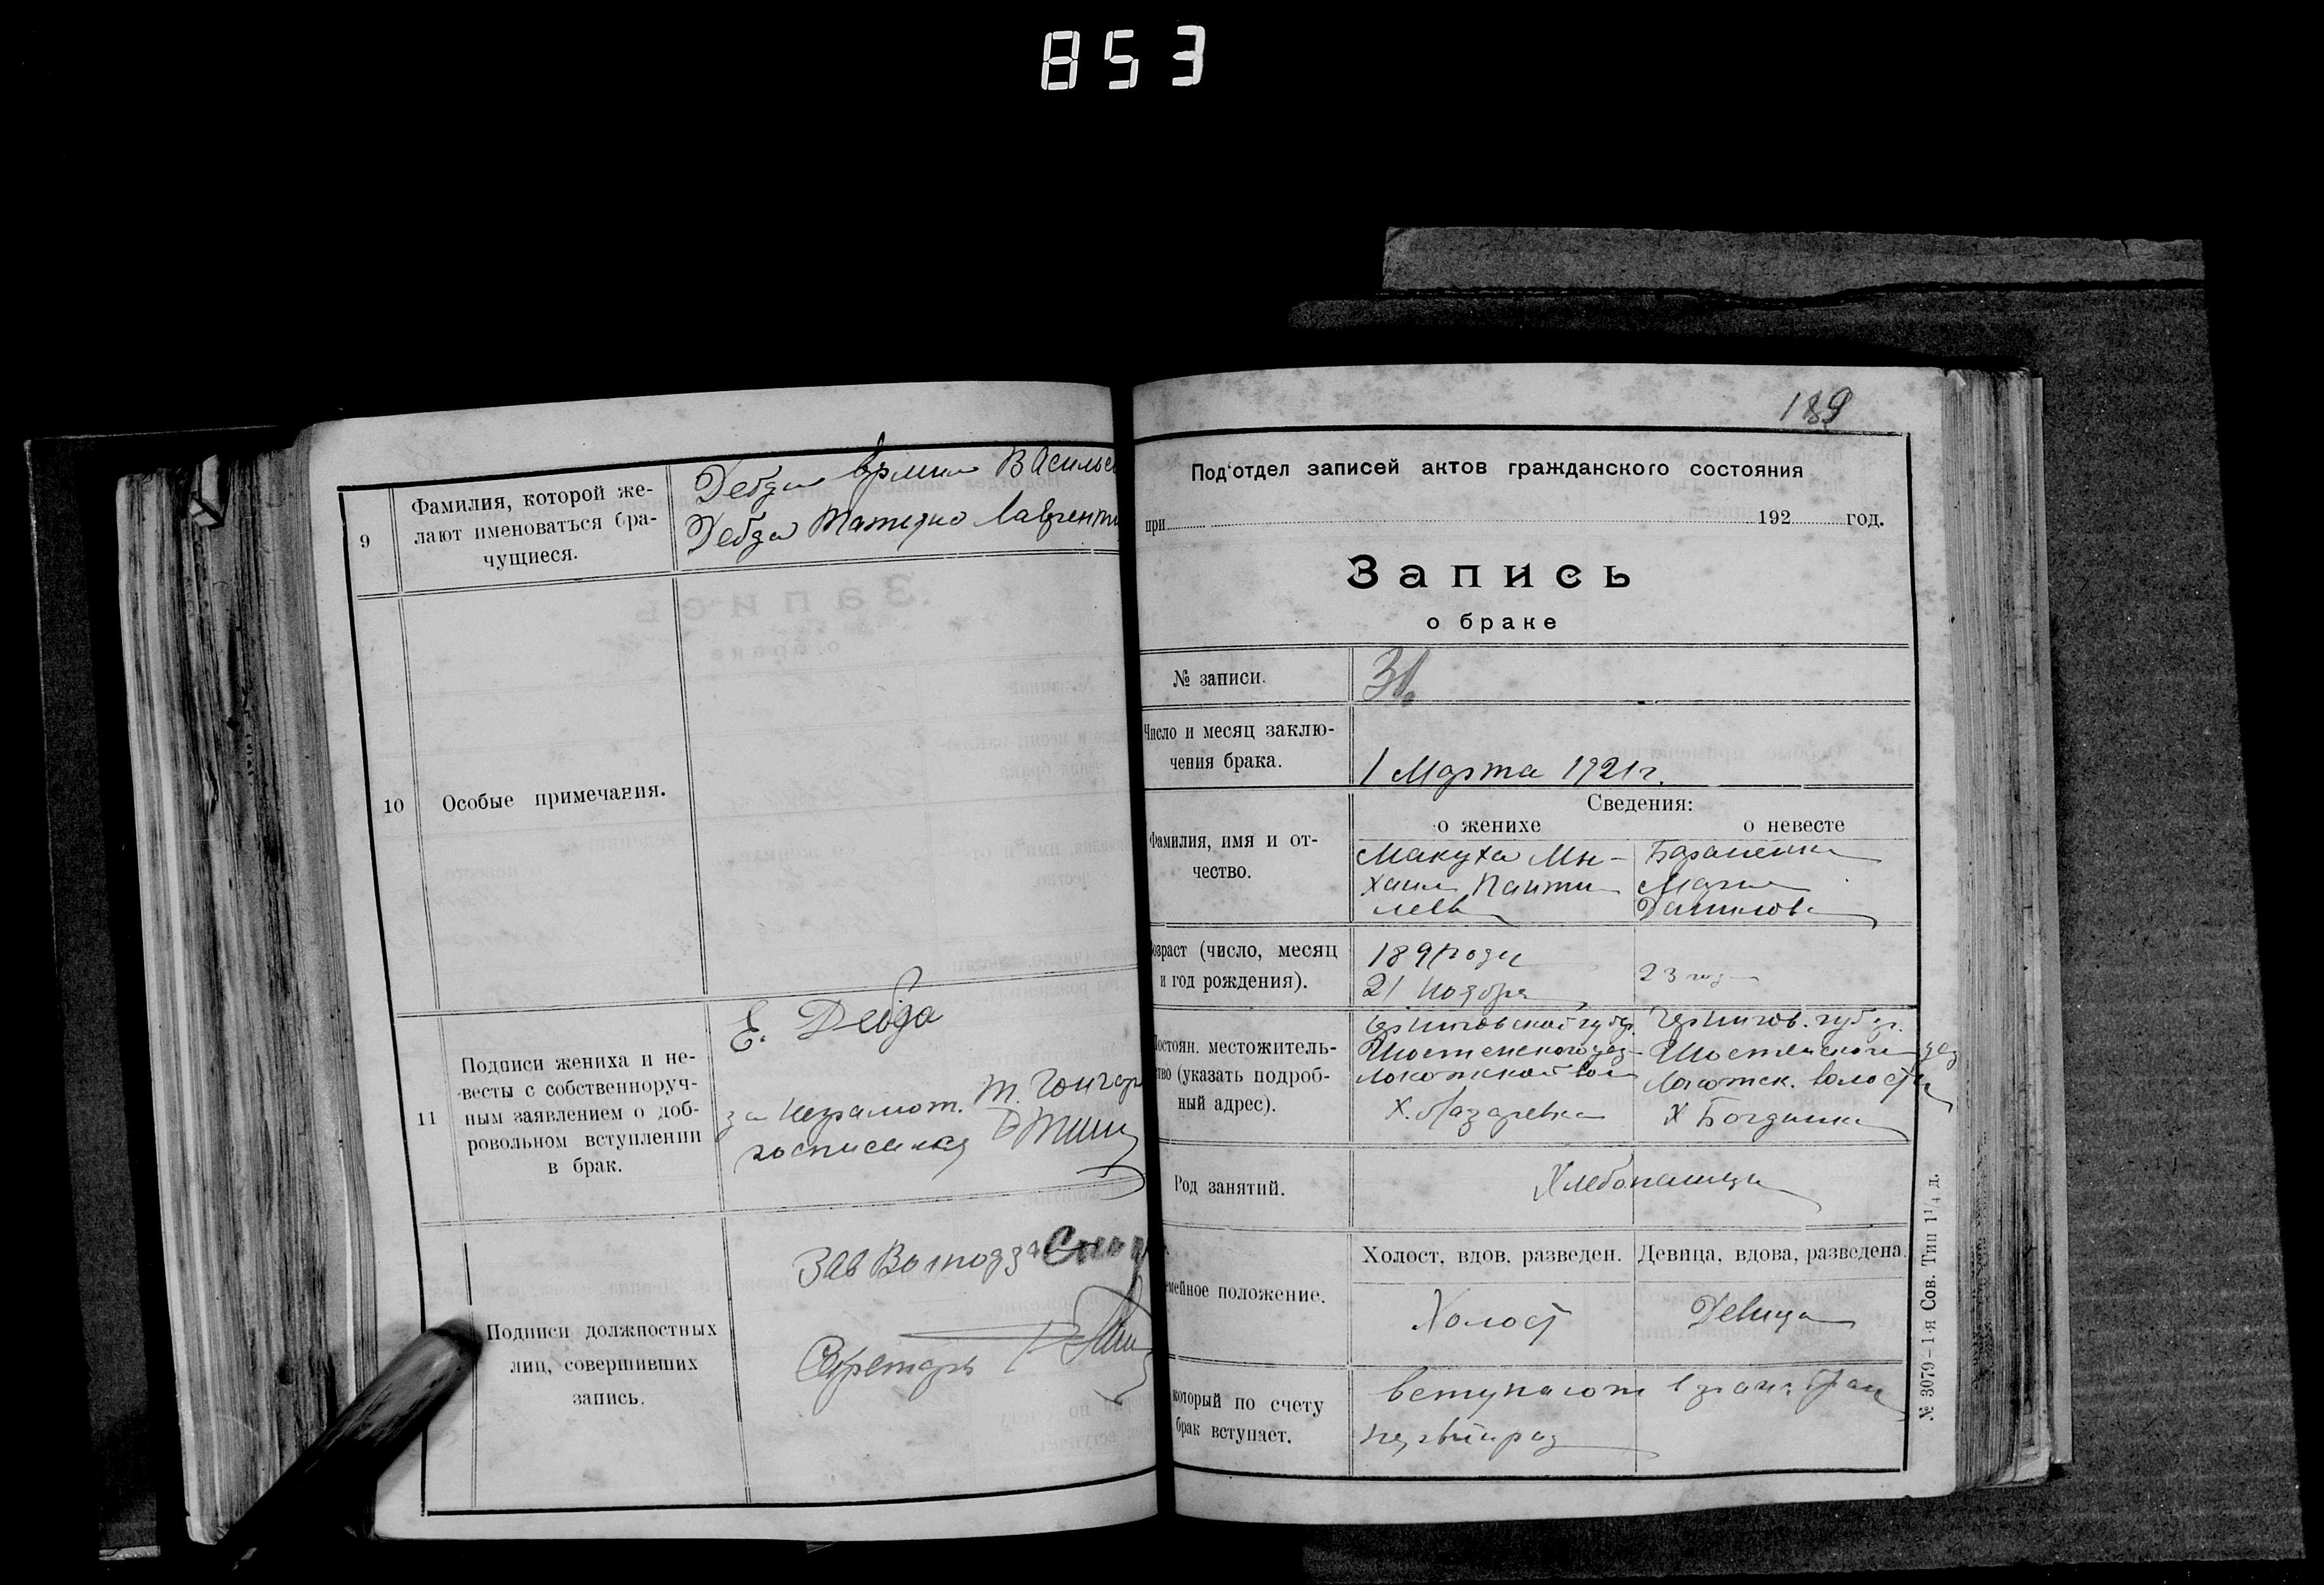 853
9
Фамилия, которой же-
лают именоваться бра-
чущиеся.
Дебда Васильев
Дебда Татьяна Лаврентьев
10
Особые примечания.
11
Подписи жениха и не-
весты с собственноруч-
ным заявлением о доб-
ровольном вступлении
в брак.
Е. Дебда
за неграмот. Т. Гончар
росписался
Подписи должностных
лиц, совершивших
запись.
Зав
Секретарь
189
Под'отдел записей актов гражданского состояния
при 192 год.
Запись
о браке
№ записи.
31
Число и месяц заклю-
чения брака.
1 Марта 1921 г.
Сведения:
о женихе
о невесте
Фамилия, имя и от-
чество.
Макуха Ми-
хаил Панти
леев
Мария
Данилова
озраст (число, месяц
и год рождения).
21 Ноября
23 год
остоян. местожитель-
тво (указать подроб-
ный адрес).
Черниговской губер.
Шостенского уез
Локотской вол
Х. Лазаревка
Чернигов. губер.
Шостенского уез
Локотск. волости
Х Богданка
Род занятий.
Хлебопашцы
емейное положение.
Холост, вдов, разведен.
Девица, вдова, разведена.
Холост
Девица
который по счету
брак вступает.
вступают в граж. брак
первый раз
№ 3079–1-я Сов. Тип 1¹/₄ д.